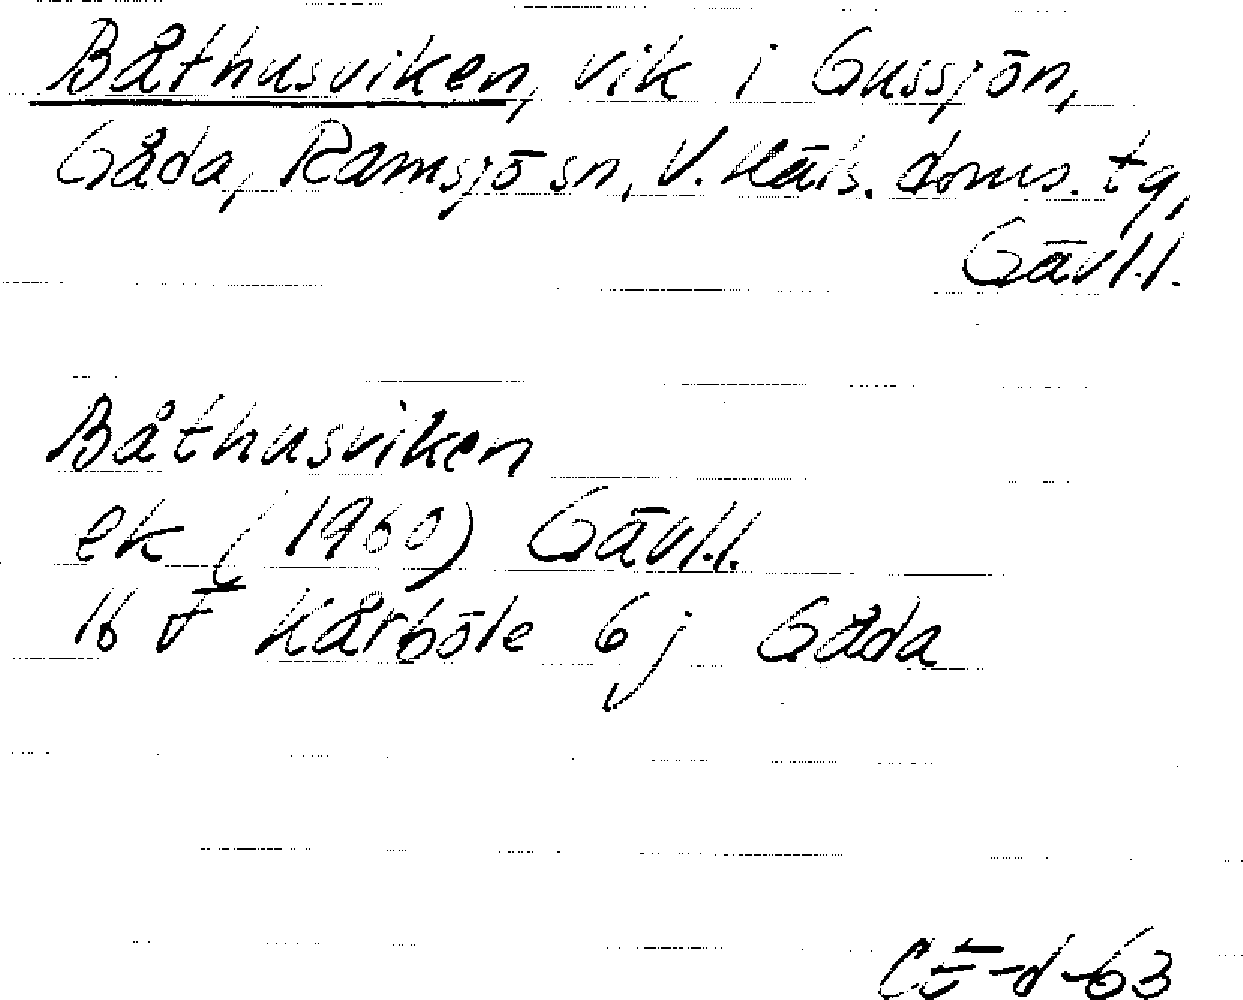 Båthusviken, vik i Gussjön,
Gåda, Ramsjö sn, V. Häls. doms. tg,
Gävl.l.
Båthusviken
ek (1960) Gävl.l.
16 F Kårböle 6 j Gåda
CE-d-63